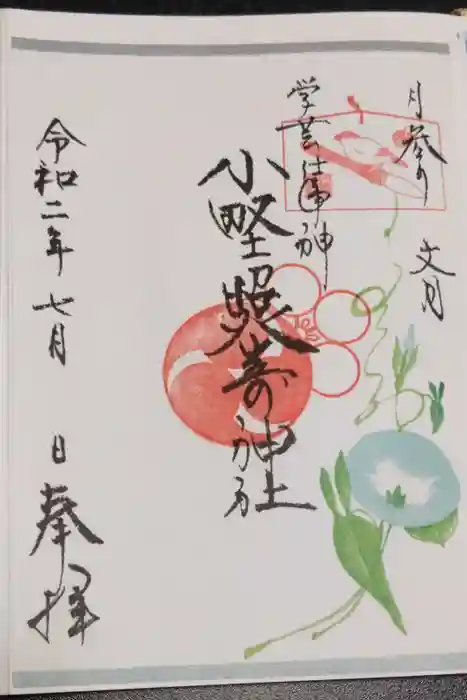 月参り 文月
学芸の神
小野照崎神社
令和二年 七月 日 奉拝